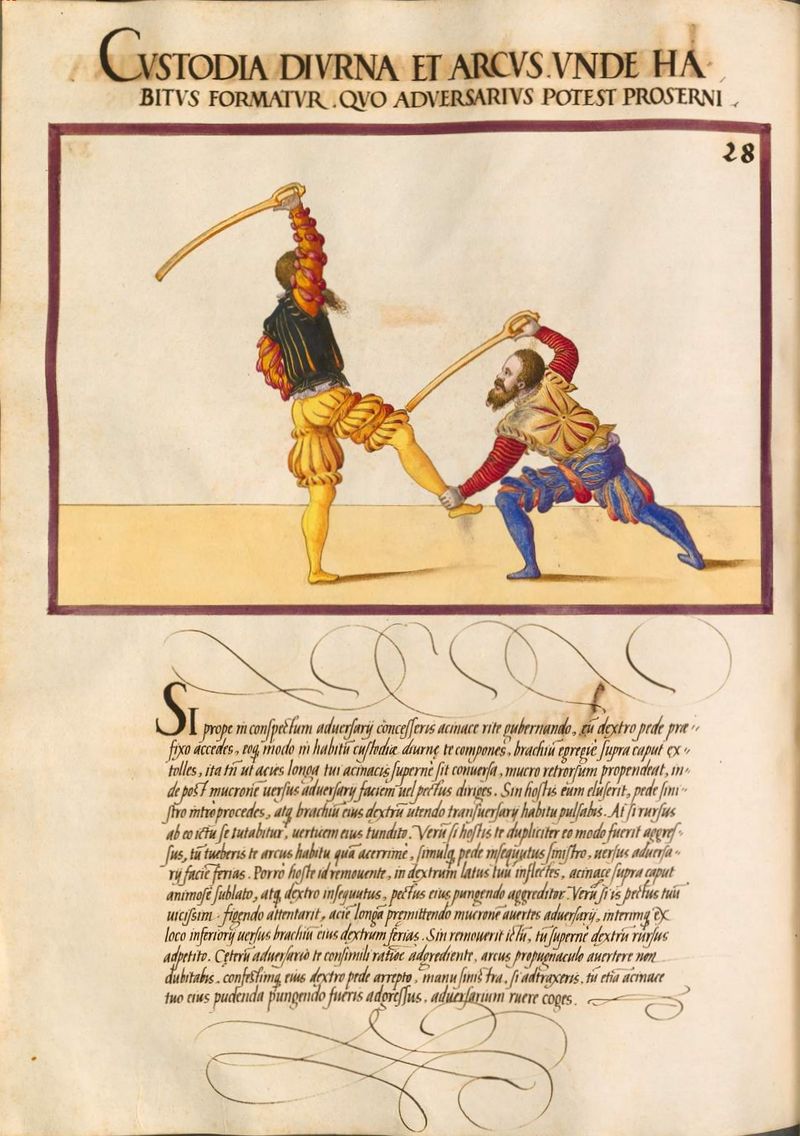 CVSTODIA DIVRNA ET ARCVS. VNDE HA
BITVS FORMATVR. QVO ADVERSARIVS POTEST PROSTERNI.
28
SI prope in conspectum adversarij concesseris acinace rite gubernando, cũ dextro pede præ=
fixo accedes, eoq̃ modo in habitũ custodiæ diurnę te compones, brachiũ egregie supra caput ex=
tolles, ita tñ ut acies longa tui acinacis supernè sit conversa, mucro retrorsum propendeat, in=
de post mucronẽ versus adversarij faciem vel pectus diriges. Sin hostis eum eluserit, pede sini=
stro introprocedes, atq̃ brachiũ eius dextrũ utendo transversarij habitu pulsabis. At si rursus
ab eo ictu se tutabitur, verticem eius tundito. Verũ si hostis te dupliciter eo modo fuerit aggres=
sus, tũ tueberis te arcus habitu quã acerrimè, simulq̃ pede insequutus sinistro, versus adversa=
rij faciẽ ferias. Porrò hoste id removente, in dextrum latus tuũ inflectes, acinace supra caput
animosè sublato, atq̃ dextro insequutus, pectus eius pungendo aggreditor. Verũ si is pectus tuũ
vicissim figendo attentarit, aciẽ longa premittendo mucronẽ avertes adversarij, interimq̃ ex
loco inferiori versus brachiũ eius dextrum ferias. Sin removerit ictũ, tũ supernè dextrũ rursus
adpetito. Ceterũ adversariũ te consimili ratiõe adgrediente, arcus propugnaculo avertere non
dubitabis, confestimq̃ eius dextro pede arrepto, manu sinistra, si adtraxeris, tũ etiã acinace
tuo eius pudenda pungendo fueris adgressus, adversarium ruere coges.